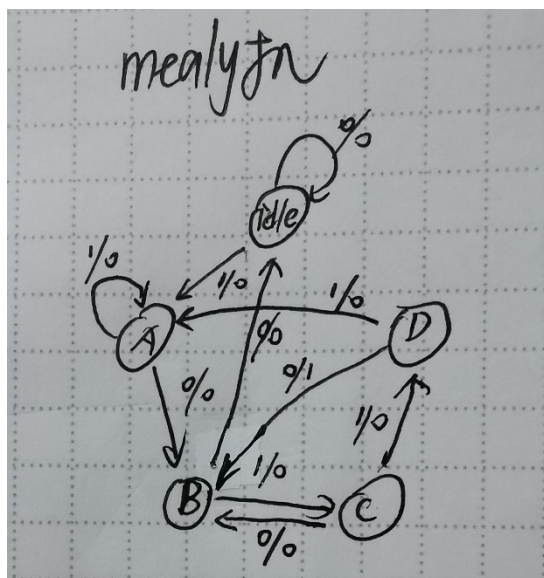 mealyfn
0/0
idle
1/0
1/0
1/0
A
D
0/0
0/0
0/1
1/0
1/0
B
C
0/0